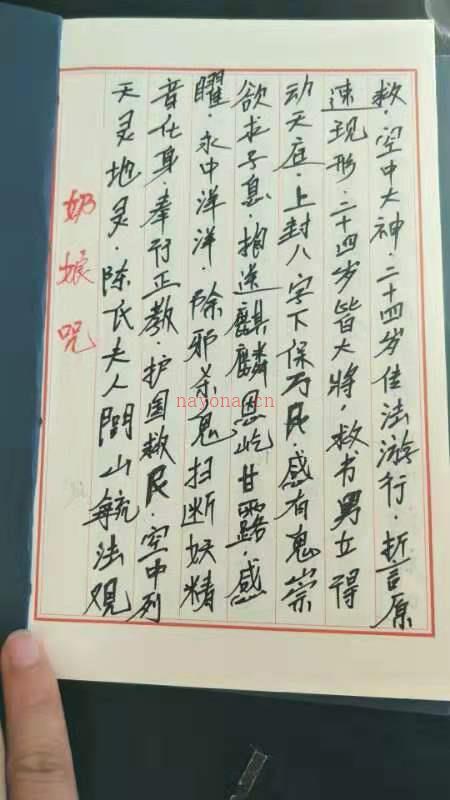 奶娘咒
天灵地灵·陈氏夫人闾山毓法观
音化身·奉行正教·护国救民·空中列
曜·永中洋洋·除邪杀鬼扫断妖精
欲求子息·抱送麒麟恩屹甘露·感
动天庭·上封八字下保万民·感有鬼祟
速现形·二十四岁皆大将·救书男立得
救·空中大神·二十四岁佳法游行·折言原
nayona.cn